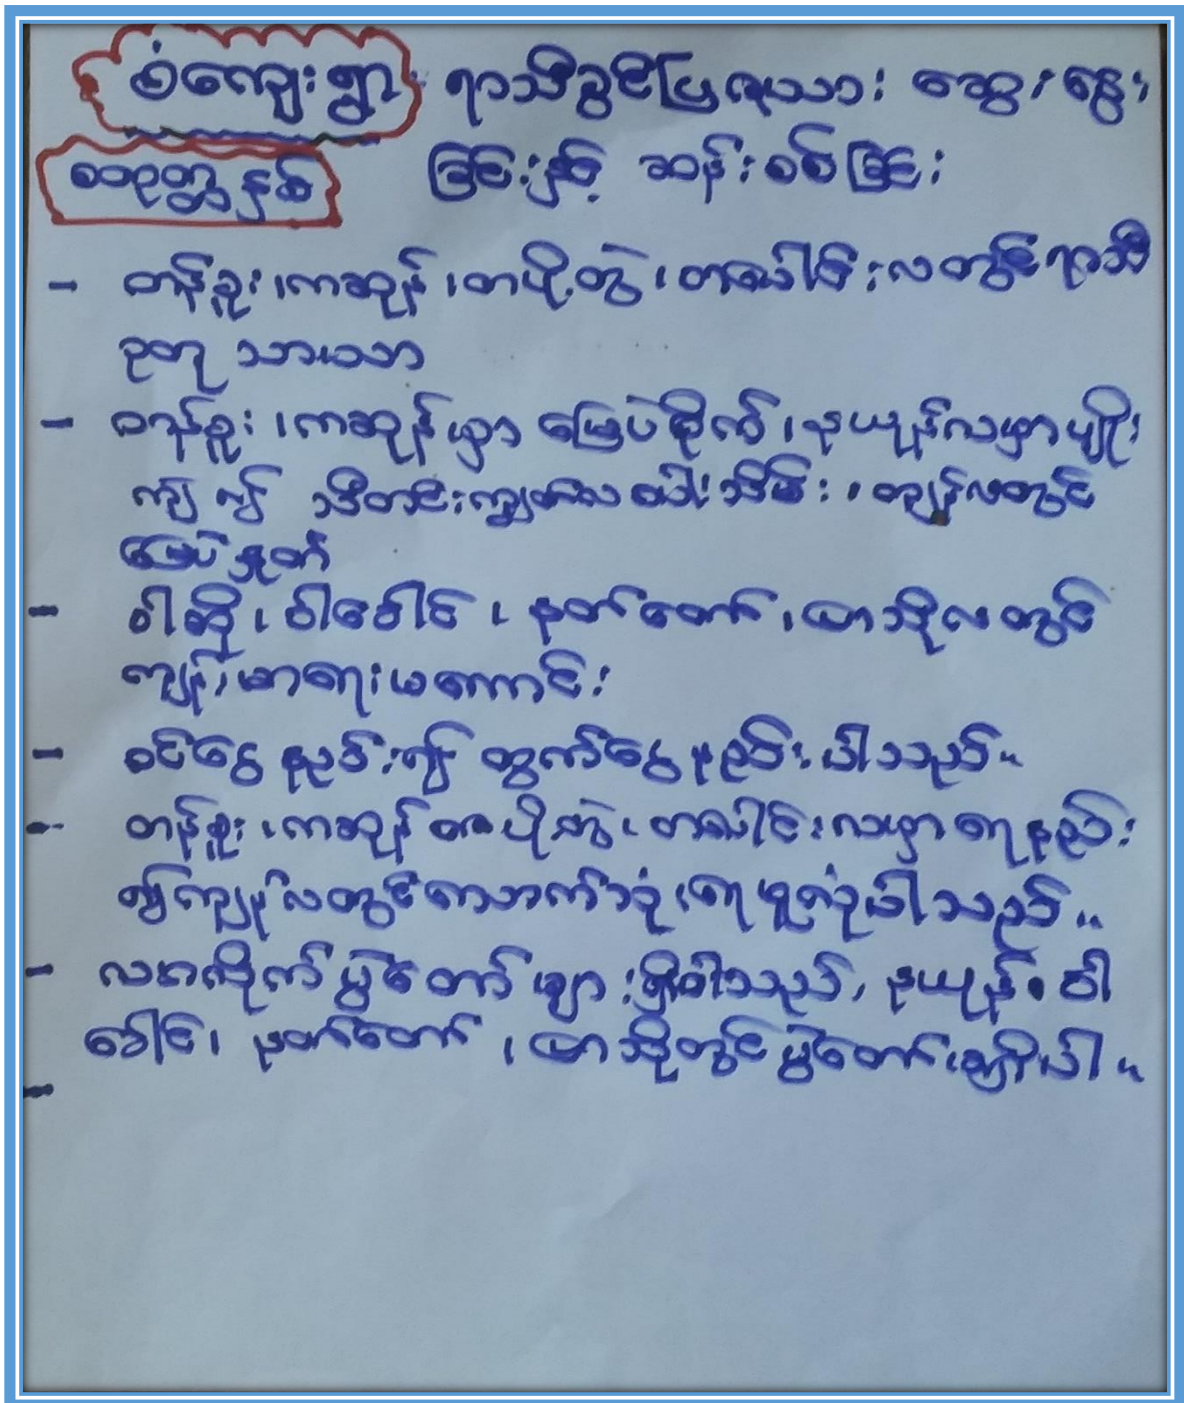 စံကျေးရွာ ရာသီခွင်ပြဇယား ဆွေးနွေး
စတုတ္ထနှစ် ခြင်းနှင့် ဆန်းစစ်ခြင်း
- တန်ခူး၊ ကဆုန်၊ တပို့တွဲ၊ တပေါင်းလတွင် ရာသီ
ဥတု သာယာ
- တန်ခူး၊ ကဆုန်မှာ မြေပဲစိုက်၊ နယုန်လမှာ မျိုး
ကျဲ ၍ သီတင်းကျွတ်လ စပါးသိမ်း၊ လတွင်
မြေပဲနှုတ်
- ဝါဆို၊ ဝါခေါင်၊ နတ်တော်၊ ပြာသိုလတွင်
ကျန်းမာရေးမကောင်း
- ဝင်ငွေနည်း၍ ထွက်ငွေနည်းပါသည်။
- တန်ခူး၊ ကဆုန် တပို့တွဲ၊ တပေါင်းလမှာ ရေနည်း
၍ လတွင် သောက်သုံးရေ ပါသည်။
- လစဉ်လိုလို ပွဲတော်များရှိပါသည်၊ နယုန်၊ ဝါ
ခေါင်၊ နတ်တော်၊ ပြာသိုတွင် ပွဲတော်မရှိပါ။
-